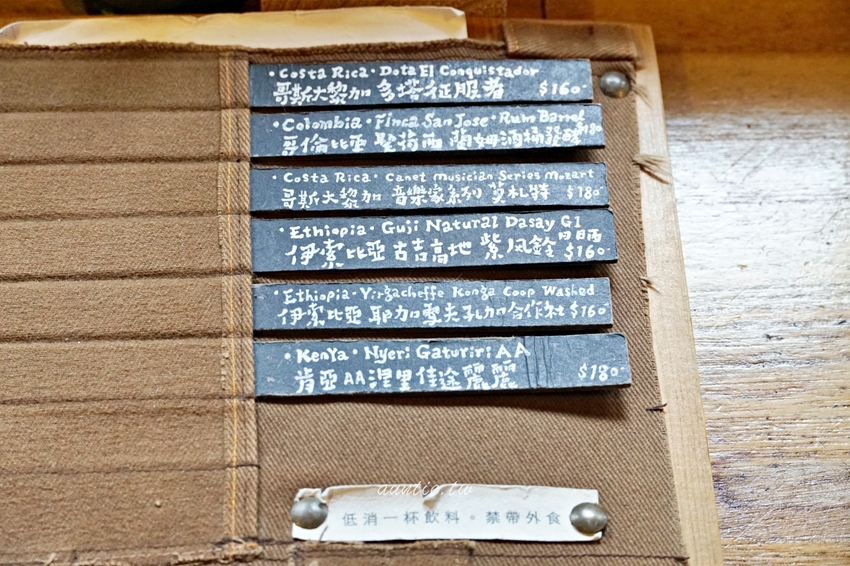 •Costa Rica•Dota El Conquistador
哥斯大黎加 多塔征服者 $160-
•Colombia•Finca San Jose•Rum Barrel
哥倫比亞 聖荷西 蘭姆酒桶發酵 $180
•Costa Rica•Canet Musician Series Mozart
哥斯大黎加 音樂家系列 莫札特 $180-
•Ethiopia•Guji Natural Dasay G1
伊索比亞 古吉高地 紫風鈴 日晒 $160-
•Ethiopia•Yirgacheffe Konga Coop Washed
伊索比亞 耶加雪夫孔加合作社 $160
•Kenya•Nyeri Gaturiri AA
肯亞 AA 涅里佳途麗麗 $180-
auntie.tw
低消一杯飲料。禁帶外食